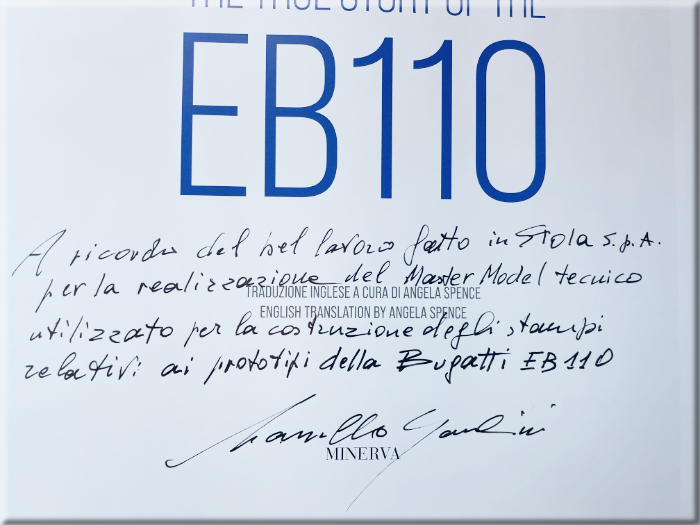 THE TRUE STORY OF THE
EB110
A ricordo del bel lavoro fatto in Stola S.p.A.
per la realizzazione del Master Model tecnico
TRADUZIONE INGLESE A CURA DI ANGELA SPENCE
ENGLISH TRANSLATION BY ANGELA SPENCE
utilizzato per la costruzione degli stampi
relativi ai prototipi della Bugatti EB110
Marcello Gandini
MINERVA